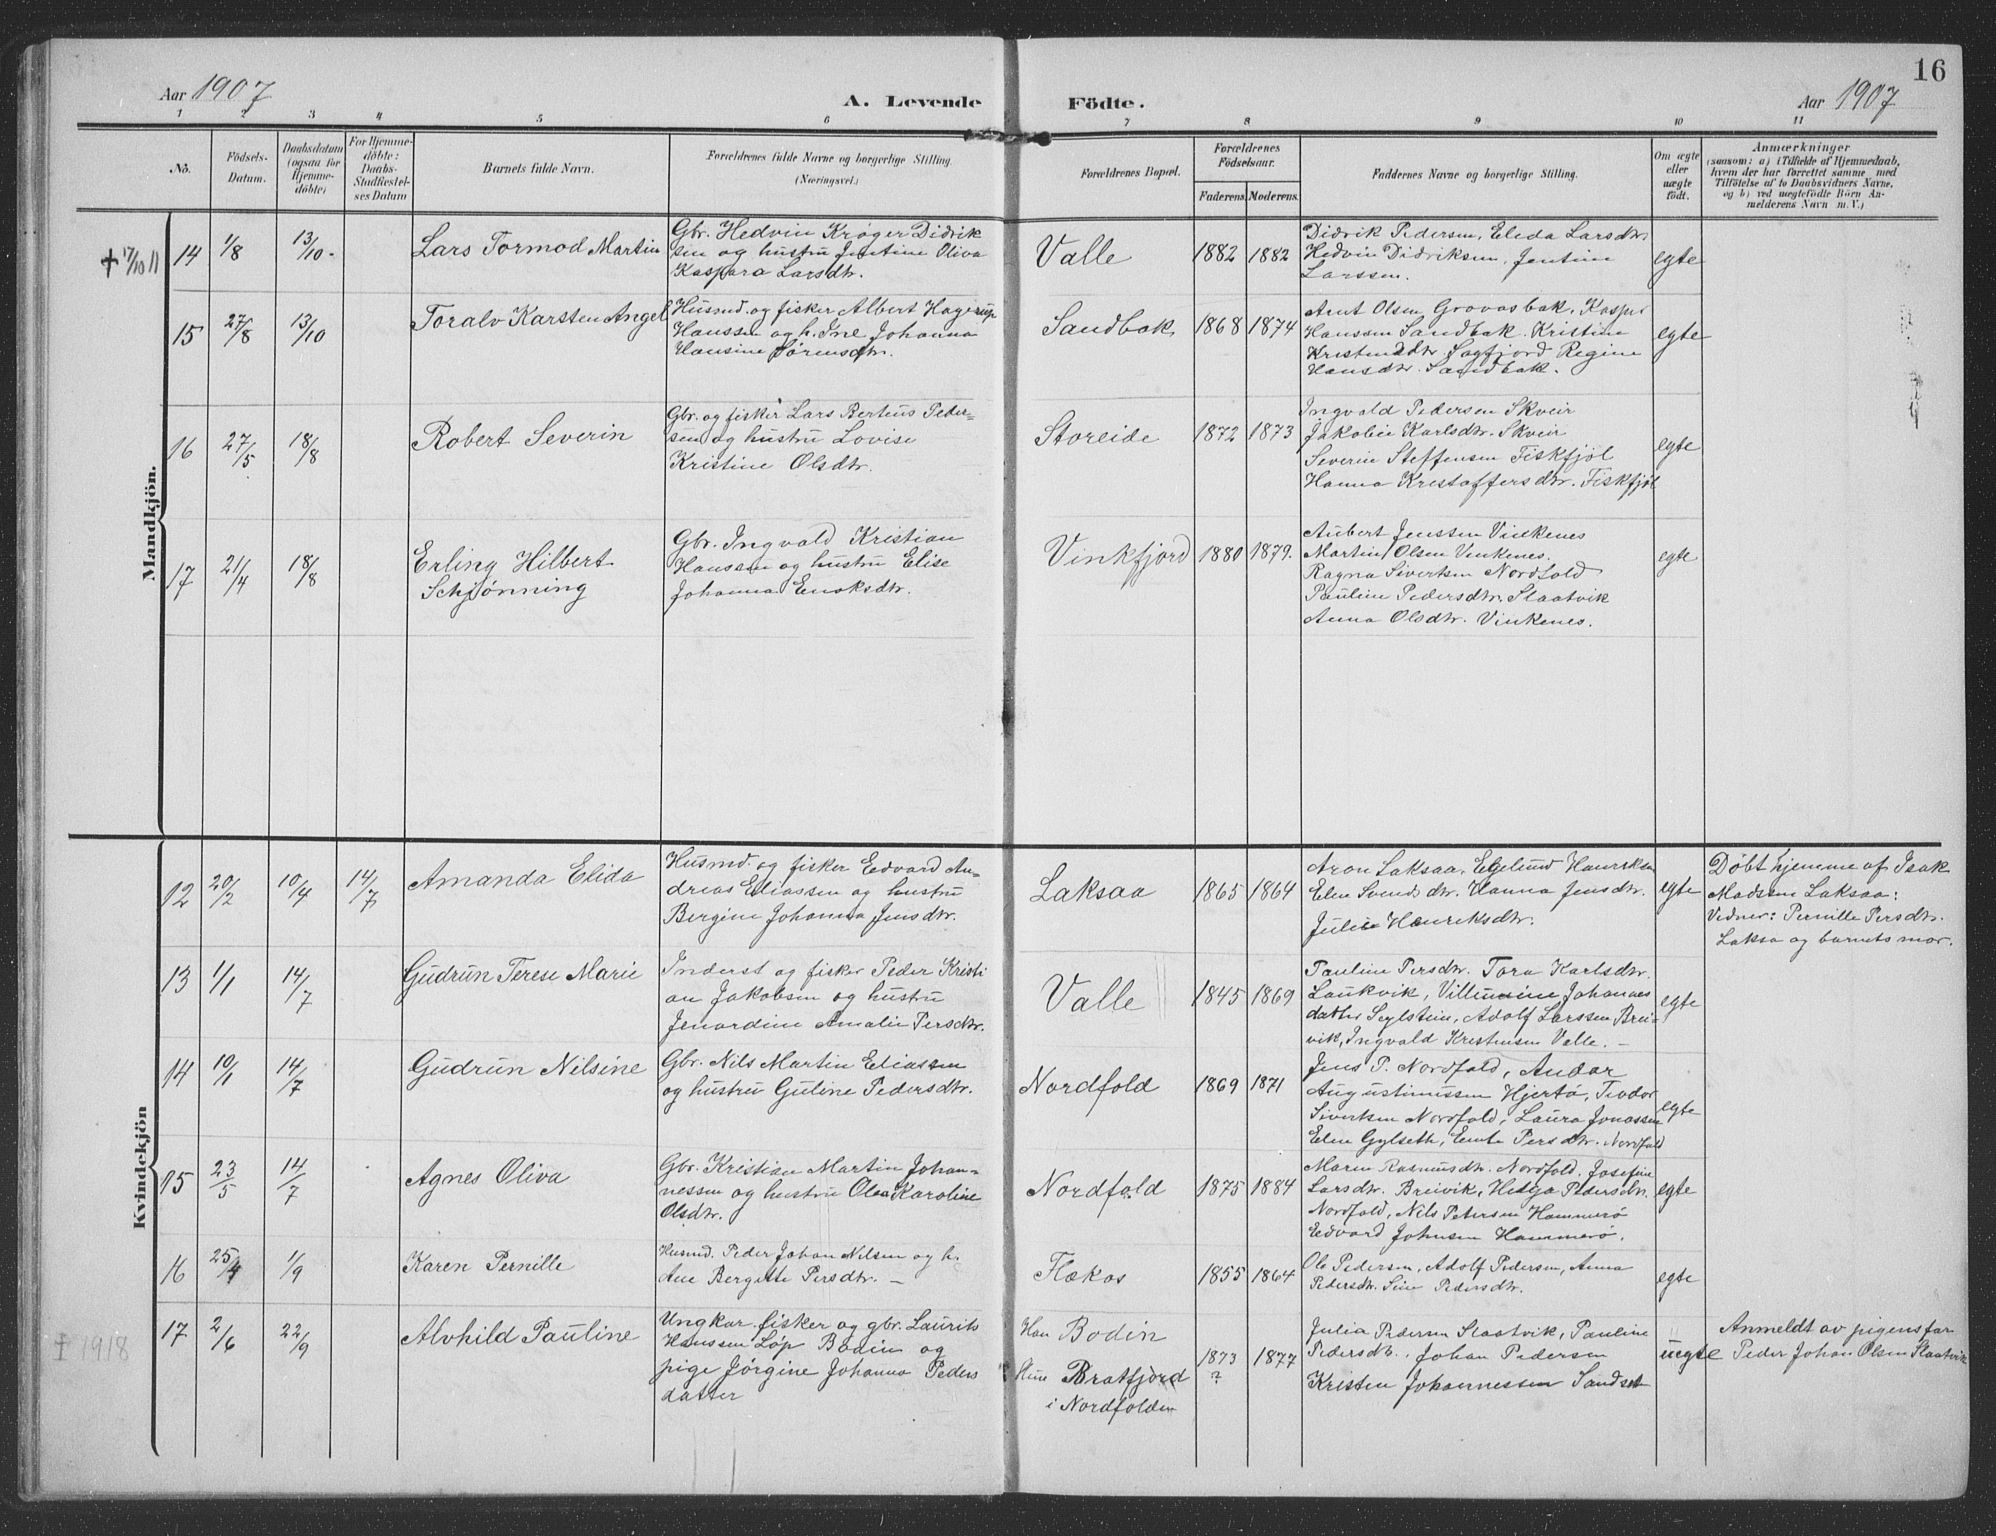 16
Aar 1907
A. Levende Födte.
Aar 1907
1 2 3 4 5 6 7 8 9 10 11
No.
Födsels-
Datum.
Daabsdatum
(ogsaa for
Hjemme-
döbte)
For Hjemme-
döbte:
Daabs-
Stadfæstel-
ses Datum
Barnets fulde Navn.
Forældrenes fulde Navne og borgerlige Stilling.
(Næringsvei.)
Forældrenes Bopæl.
Forældrenes
Födselsaar.
Faderens. Moderens.
Faddernes Navne og borgerlige Stilling.
Om ægte
eller
uægte
födt.
Anmærkninger
(saasom: a) i Tilfælde af Hjemmedaab,
hvem der har forrettet samme med
Tilföielse af to Daabsvidners Navne,
og b) ved uægtefödte Börn An-
melderens Navn m. V.)
Mandkjön.
✝ 17/10 11
14 1/8 13/10 -
Lars Tormod Martin
Gbr. Hedvin Krøger Didrik
sen og hustru Jentine Oliva
Kaspara Larsdtr.
Valle
1882 1882
Didrik Pedersen, Elida Larsdtr.
Hedvin Didriksen, Jentine
Larssen.
egte
15 27/8 13/10
Toralv Karsten Angel
Husmd. og fisker Albert Hagerup
Hanssen og h. Ine Johanna
Hansine Sørensdtr.
Sandbak
1868 1874
Arnt Olsen Grovasbak, Kasper
Hanssen Sandbak. Kristine
Kristensdtr. Sagfjord Regine
Hansdtr. Sandbak.
egte
16 27/5 18/8
Robert Severin
Gbr. og fisker Lars Berteus Peder-
sen og hustru Lovise
Kristine Olsdtr.
Storeide
1872 1873
Ingvald Pedersen Skveir
Jakobie Karlsdtr. Skveir
Severin Steffensen Fiskfjøl
Hanna Kristoffersdtr. Fiskfjøl
egte
17 21/4 18/8
Erling Hilbert
Schjönning
Gbr. Ingvald Kristian
Hanssen og hustru Elise
Johanna Enoksdtr.
Vinkfjord
1880 1879.
Aubert Jenssen Vinkenes
Martin Olsen Vinkenes.
Ragna Sivertsen Nordfold
Pauline Pedersdtr. Slaatvik
Anna Olsdtr. Vinkenes.
egte
Kvindekjön
12 20/2 10/4 14/7
Amanda Elida
Husmd. og fisker Edvard An-
dreas Eliassen og hustru
Bergine Johanna Jensdtr.
Laksaa
1865 1864
Aron Laksaa, Egelund Henriksen
Elen Svendsdtr. Hanna Jensdtr.
Julie Henriksdtr.
egte
Døbt hjemme af Isak
Madssen Laksaa:
Vidner: Pernille Persdtr.
Laksa og barnets mor.
13 1/1 14/7
Gudrun Terese Marie
Inderst og fisker Peder Kristi
an Jakobsen og hustru
Jenordine Amalie Persdtr.
Valle
1845 1869
Pauline Persdtr. Tora Karlsdtr.
Laukvik, Villumine Johannes
datter Sylstein, Adolf Larssen Brei-
vik, Ingvald Kristensen Valle. -
egte
14 10/1 14/7
Gudrun Nilsine
Gbr. Nils Martin Eliassen
og hustru Guline Pedersdtr.
Nordfold
1869 1871
Jens P. Nordfold, Andor
Augustinussen Hjertø, Teodor
Sivertsen Nordfold, Laura Jonassen
Elen Gylseth, Emte Persdtr. Nordfold
egte
15 23/5 14/7
Agnes Oliva
Gbr. Kristian Martin Johan-
nessen og hustru Olea Karoline
Olsdtr.
Nordfold
1875 1884
Maren Rasmusdtr. Nordfold. Josefine
Larsdtr. Breivik, Helga Pedersdtr.
Nordfold, Nils Petersen Hammerø
Edvard Johnsen Hammerø.
egte
16 25/4 1/9
Karen Pernille
Husmd. Peder Johan Nilsen og h.
Ane Bergitte Persdtr. -
Flekos
1855 1864
Ole Pedersen, Adolf Pedersen, Anna
Pedersdtr. Sine Pedersdtr.
egte
✝ 1918
17 2/6 22/9
Alvhild Pauline
Ungkar fisker og gbr. Laurits
Hanssen Løp Bodin og
pige Jørgine Johanna Peders
datter
Han Bodin
Hun Bratfjord
i Nordfolden
1873
?
1877
Julia Pedersen Slaatvik, Pauline
Pedersdtr., Johan Pedersen
Kristen Johannessen Sandset
uegte
Anmeldt av pigens far
Peder Johan Olsen Slaatvik